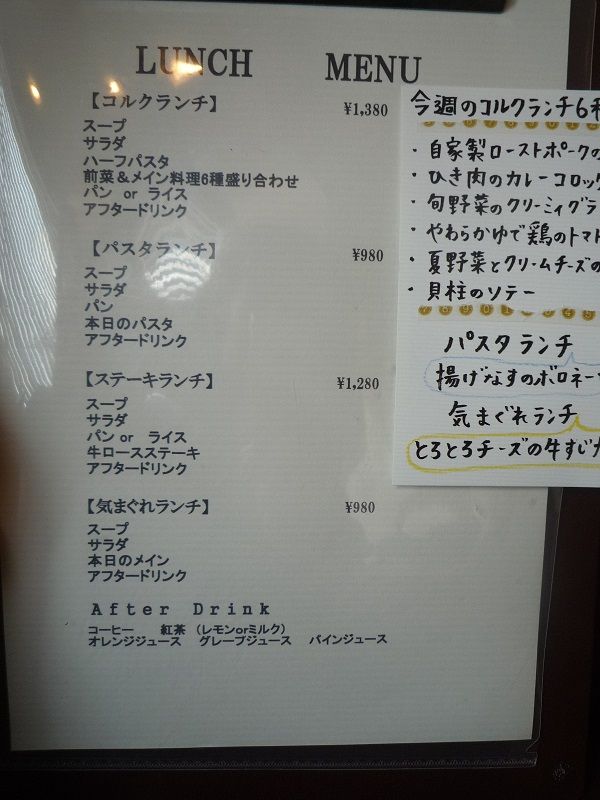 LUNCH MENU
【コルクランチ】 ¥1,380
スープ
サラダ
ハーフパスタ
前菜＆メイン料理6種盛り合わせ
パン or ライス
アフタードリンク
【パスタランチ】 ¥980
スープ
サラダ
パン
本日のパスタ
アフタードリンク
【ステーキランチ】 ¥1,280
スープ
サラダ
パン or ライス
牛ロースステーキ
アフタードリンク
【気まぐれランチ】 ¥980
スープ
サラダ
本日のメイン
アフタードリンク
After Drink
コーヒー 紅茶 （レモンorミルク）
オレンジジュース グレープジュース パインジュース
今週のコルクランチ6種
・自家製ローストポークの
・ひき肉のカレーコロッケ
・旬野菜のクリーミィグラ
・やわらかゆで鶏のトマト
・夏野菜とクリームチーズの
・貝柱のソテー
パスタランチ
揚げなすのボロネーゼ
気まぐれランチ
とろとろチーズの牛すじカ